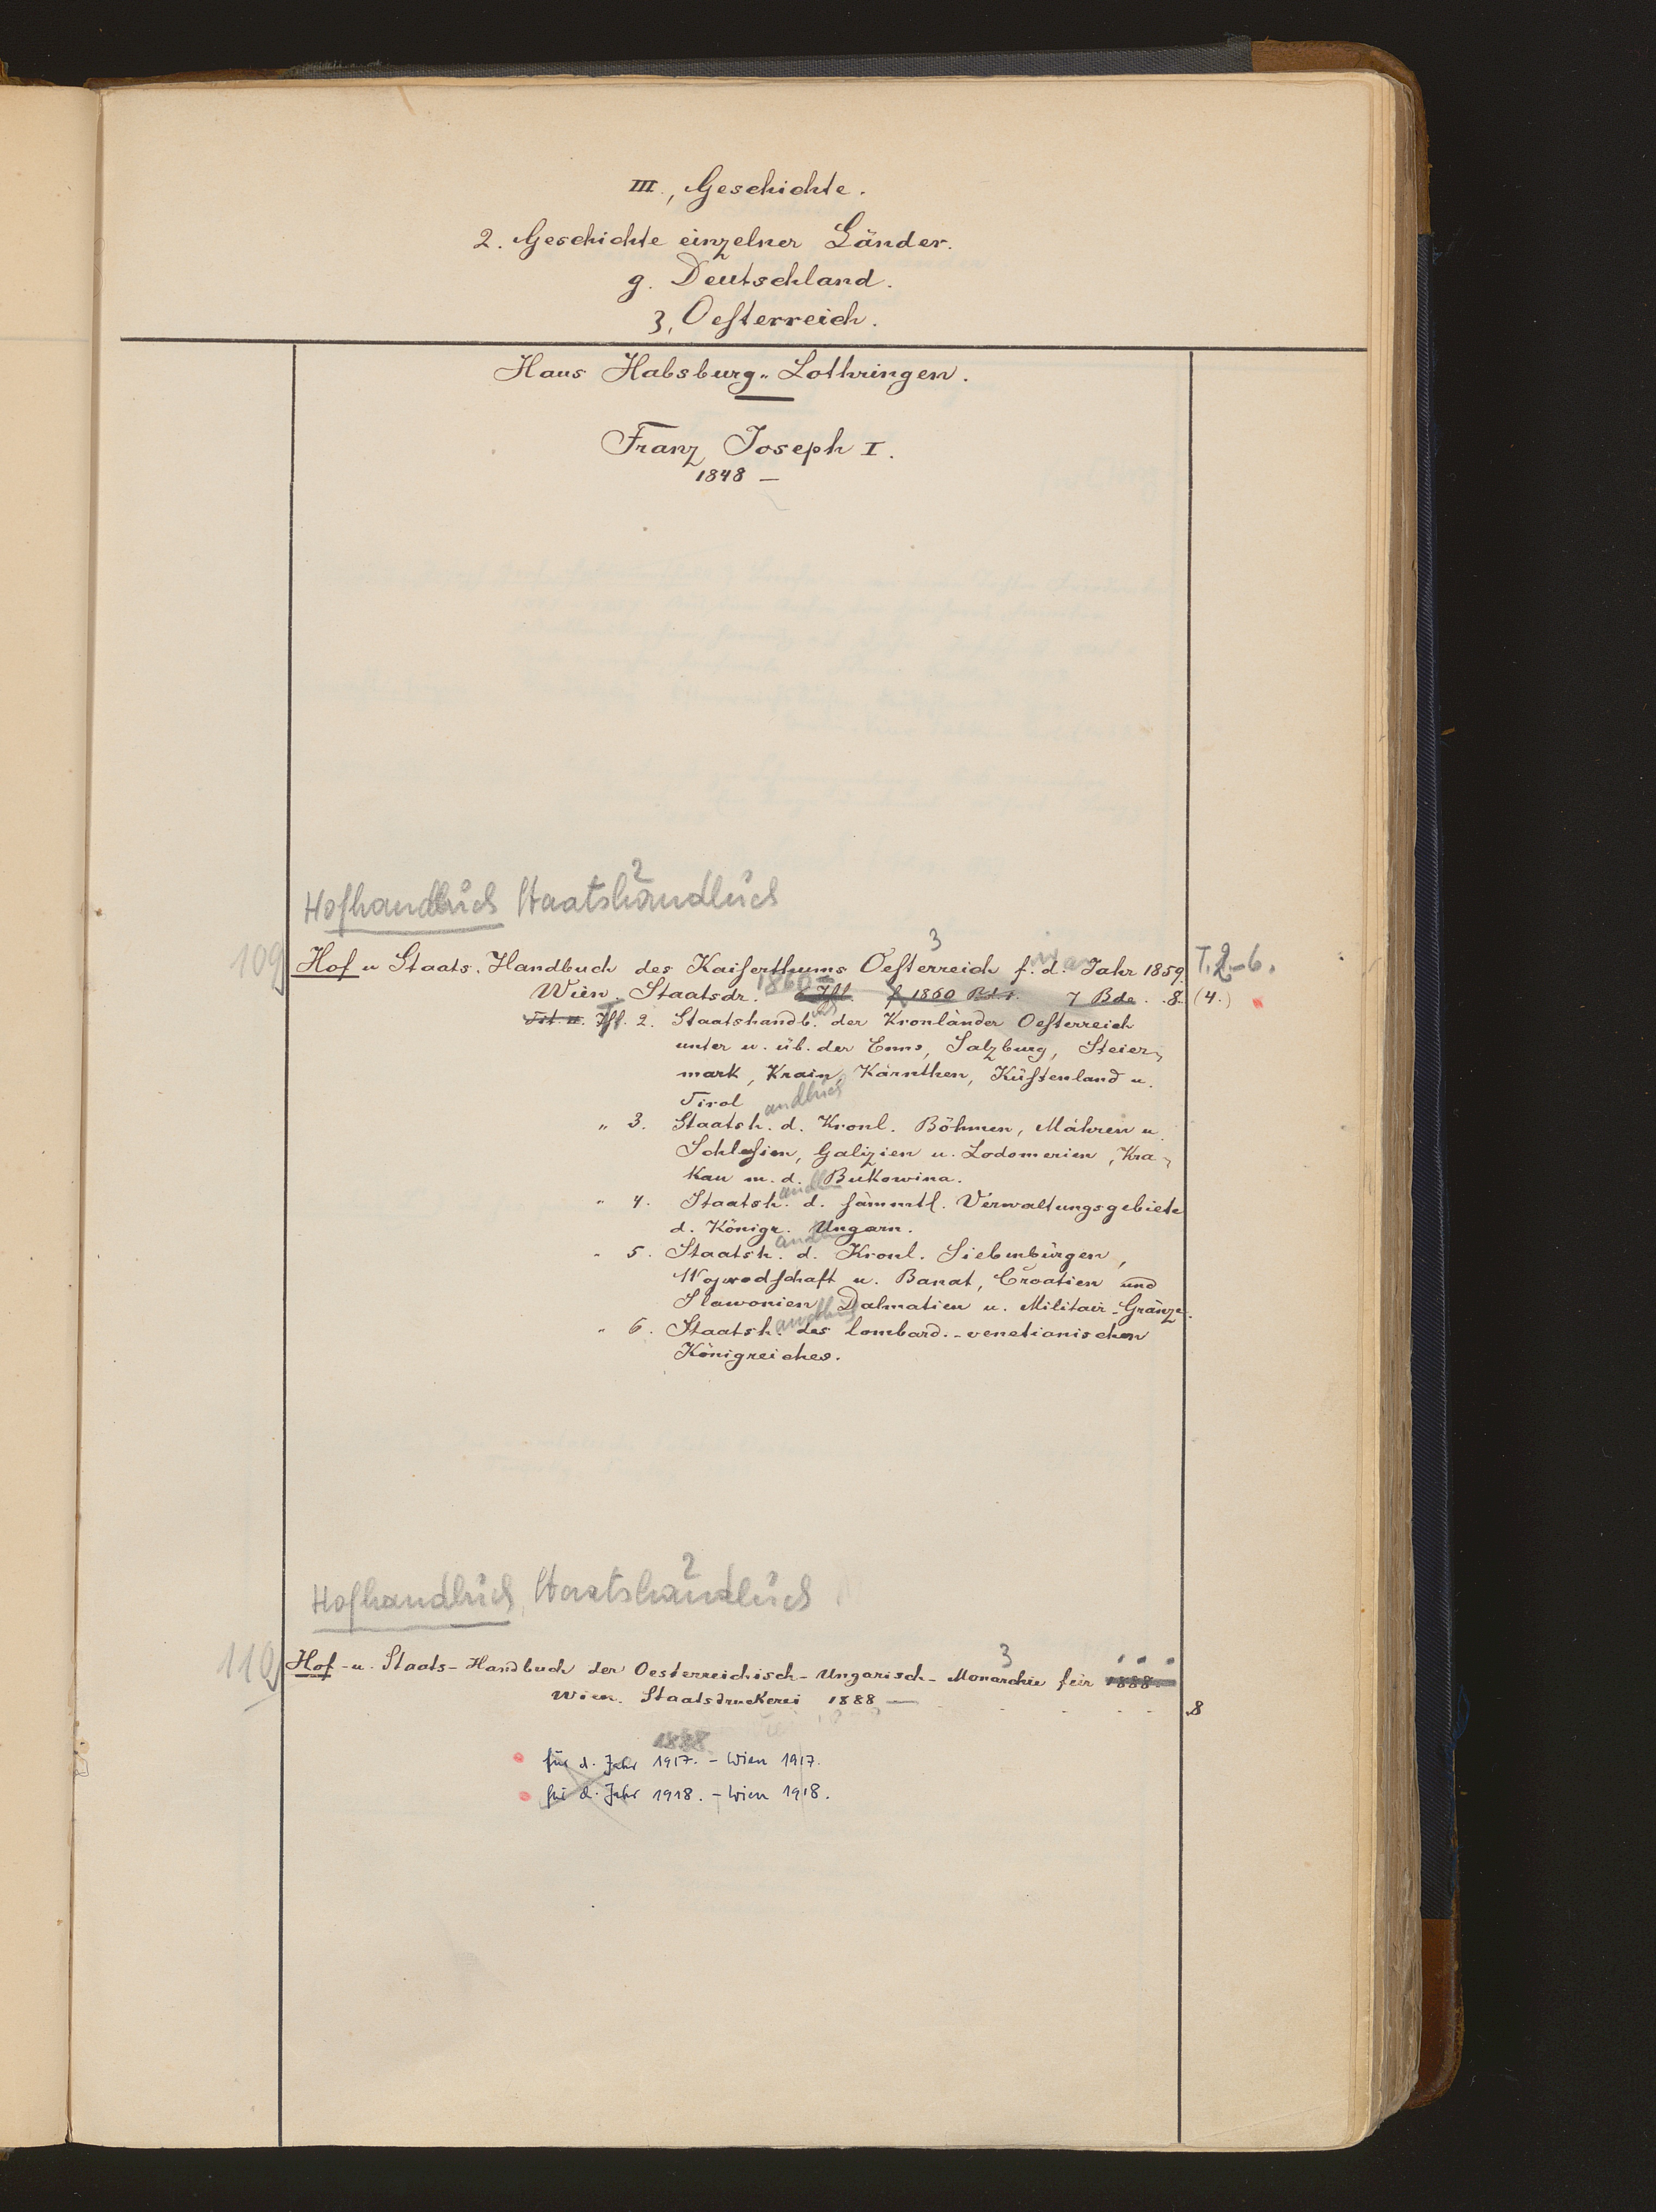 III., Geschichte.
2. Geschichte einzelner Länder.
g. Deutschland.
3, Oesterreich.
Haus Habsburg-Lothringen.
Franz Joseph I.
1848 —
2
Hofhandbuch Staatshandbuch
3
109 Hof u Staats-Handbuch des Kaiserthums Oesterreich f. d. Jahr 1859. T. 2-6.
1860
Wien. Staatsdr. f 1860 7 Bde. 8. (4.)
Thl. 2. Staatshandb. der Kronländer Oesterreich
unter u. üb. der Enns, Salzburg, Steier-
mark, Krain, Kärnthen, Küstenland u.
Tirol
andbuch
„ 3. Staatsh. d. Kronl. Böhmen, Mähren u.
Schlesien, Galizien u. Lodomerien, Kra-
kau m. d. Bukowina.
„ 4. Staatsh. d. sämmtl. Verwaltungsgebiete
d. Königr. Ungarn.
„ 5. Staatsh. d. Kronl. Siebenbürgen,
Wojwodschaft u. Banat, Croatien und
Slawonien, Dalmatien u. Militair-Gränze.
andbuch
„ 6. Staatsh. des lombard.-venetianischen
Königreiches.
2
Hofhandbuch, Staatshandbuch
3
110 Hof-u. Staats-Handbuch der Oesterreichisch-Ungarisch-Monarchie für 1888
Wien. Staatsdruckerei 1888 — 8
1888
für d. Jahr 1917. - Wien 1917.
für d. Jahr 1918. - Wien 1918.